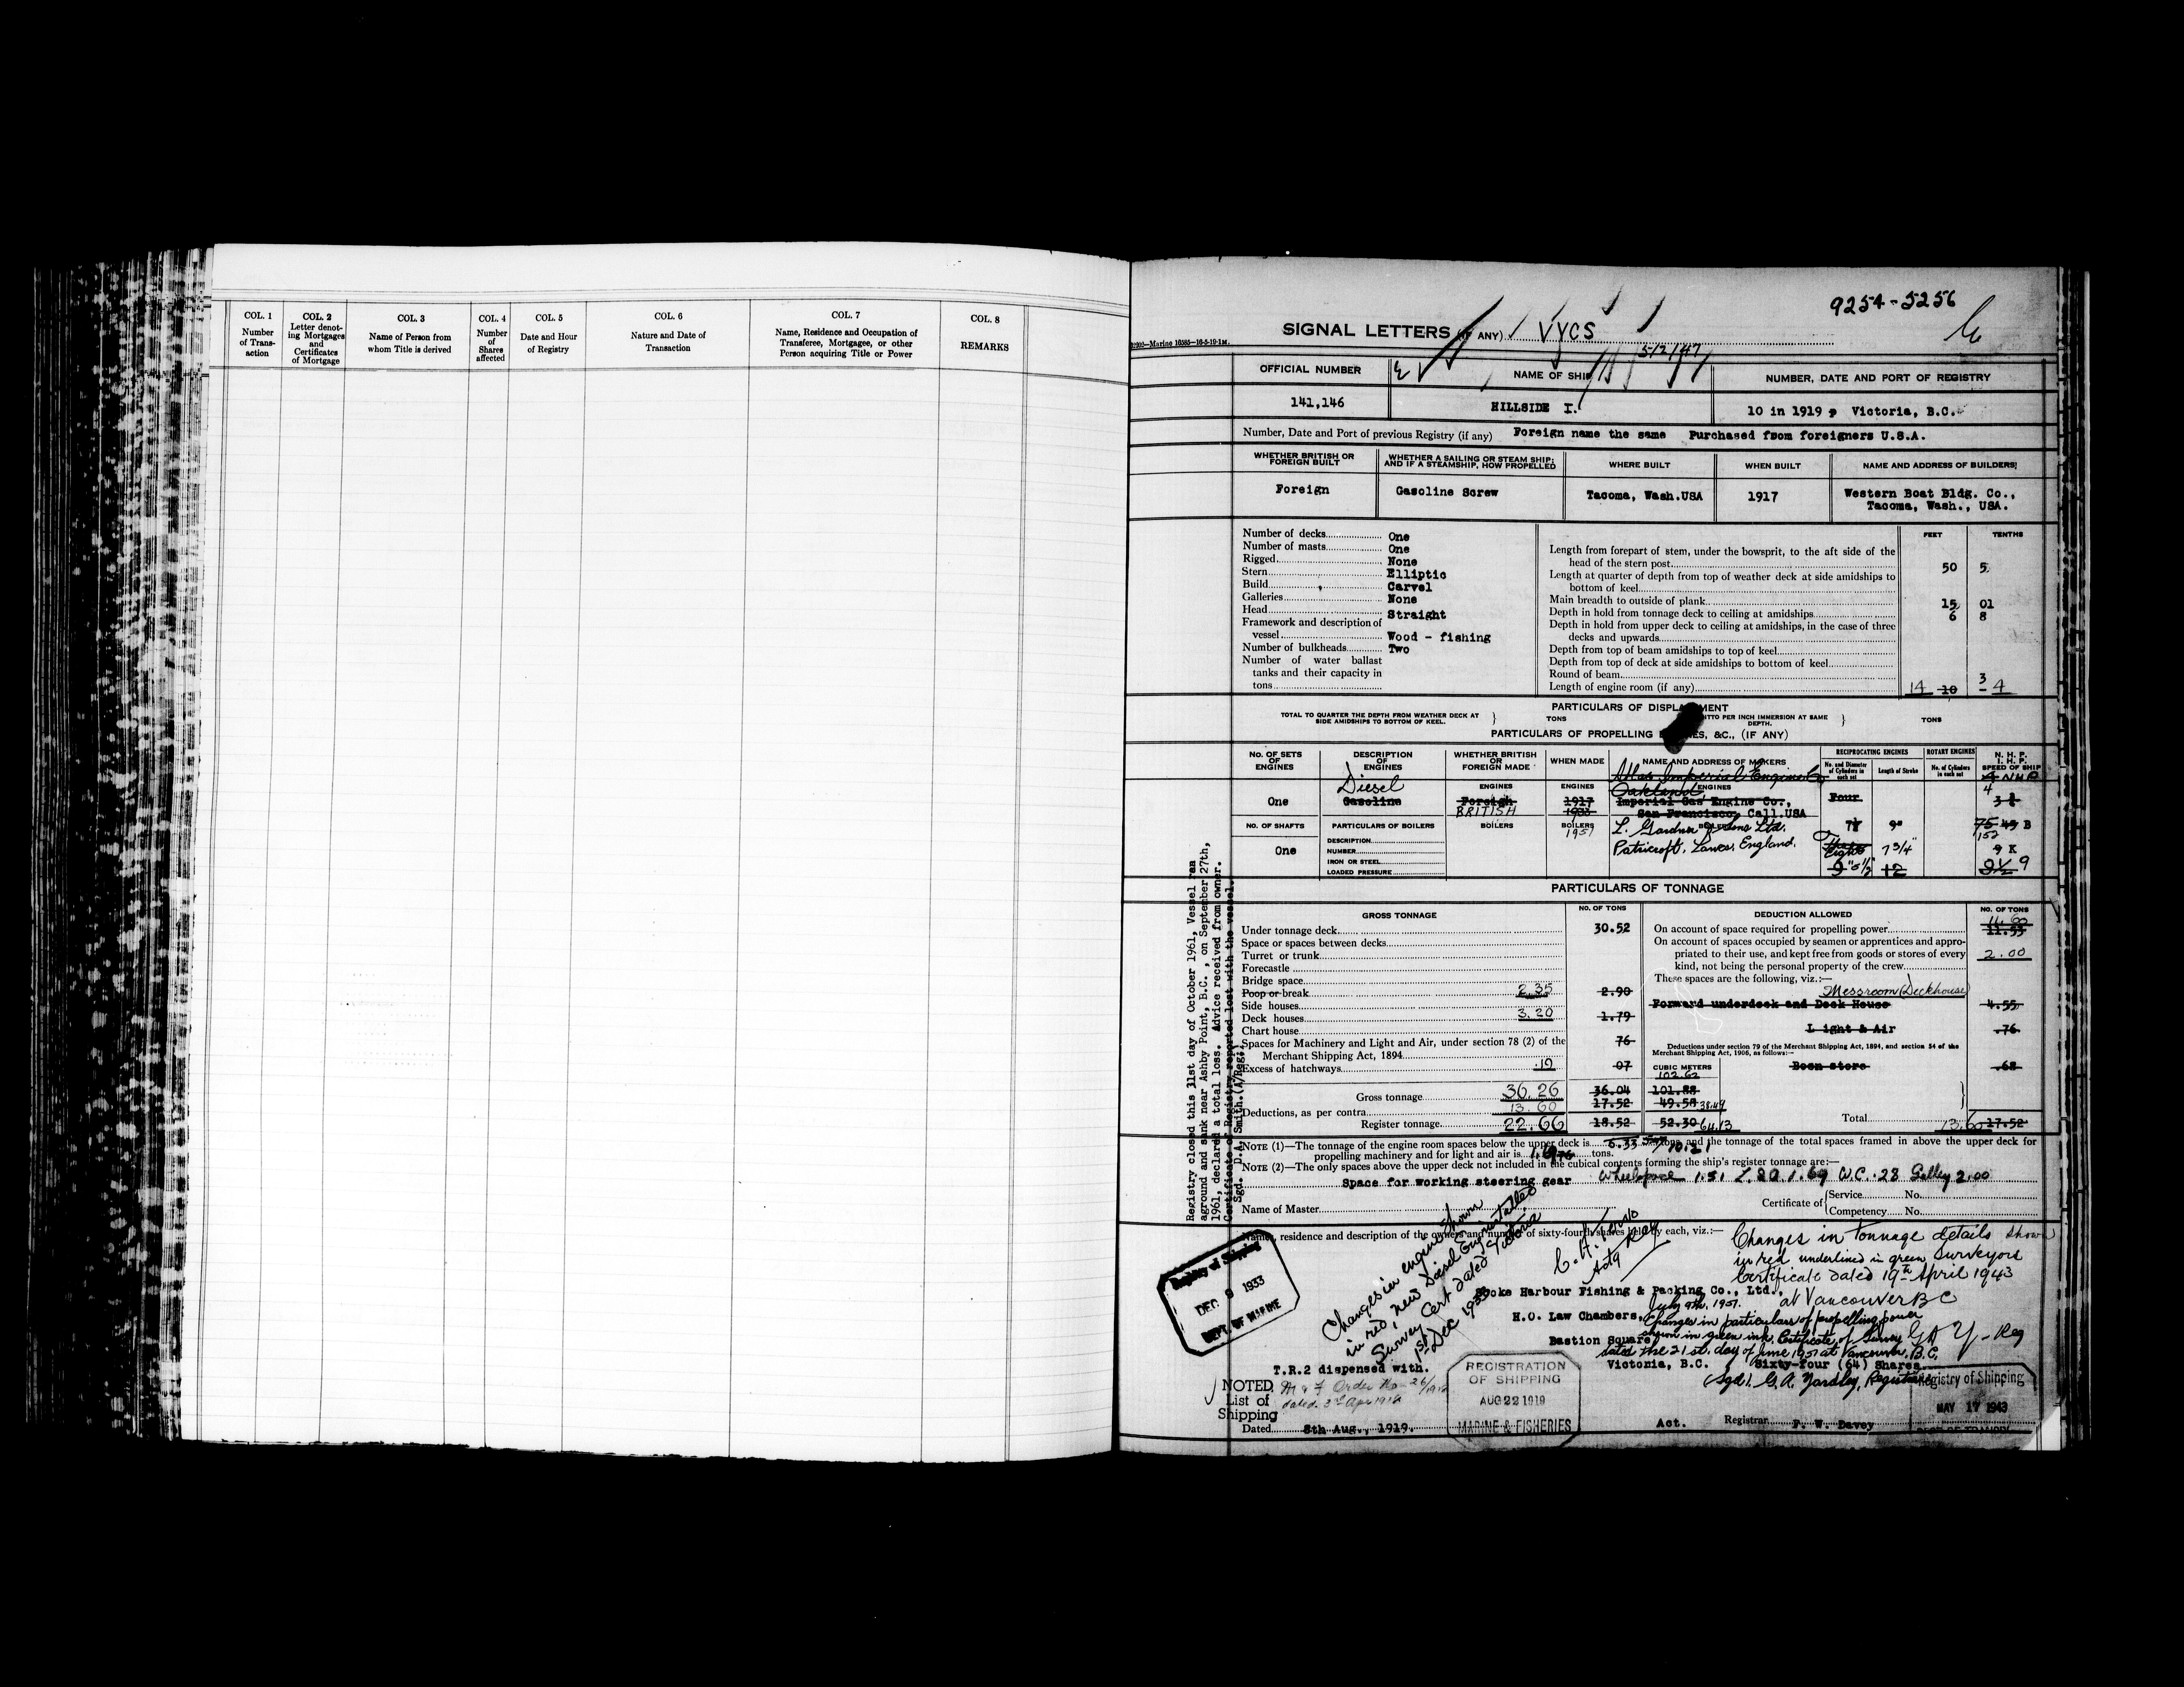 COL. 1
Number
of Trans-
action
COL. 2
Letter denot-
ing Mortgages
and
Certificates
of Mortgage
COL. 3
Name of Person from
whom Title is derived
COL. 4
Number
of
Shares
affected
COL. 5
Date and Hour
of Registry
COL. 6
Nature and Date of
Transaction
COL. 7
Name, Residence and Occupation of
Transferee, Mortgagee, or other
Person acquiring Title or Power
COL. 8
REMARKS
9254-5256
SIGNAL LETTERS (IF ANY) VYCS
5/2/47
OFFICIAL NUMBER
NAME OF SHIP
NUMBER, DATE AND PORT OF REGISTRY
141,146
HILLSIDE I.
10 in 1919, Victoria, B.C.
Number, Date and Port of previous Registry (if any) Foreign name the same Purchased fsom foreigners U.S.A.
WHETHER BRITISH OR
FOREIGN BUILT
WHETHER A SAILING OR STEAM SHIP;
AND IF A STEAMSHIP, HOW PROPELLED
WHERE BUILT
WHEN BUILT
NAME AND ADDRESS OF BUILDERS
Foreign
Gasoline Screw
Tacoma, Wash.USA
1917
Western Boat Bldg. Co.,
Tacoma, Wash., USA.
Number of decks One
Number of masts One
Rigged None
Stern Elliptic
Build Carvel
Galleries None
Head Straight
Framework and description of
vessel Wood - fishing
Number of bulkheads Two
Number of water ballast
tanks and their capacity in
tons
FEET TENTHS
Length from forepart of stem, under the bowsprit, to the aft side of the
head of the stern post 50 5
Length at quarter of depth from top of weather deck at side amidships to
bottom of keel
Main breadth to outside of plank 15 01
Depth in hold from tonnage deck to ceiling at amidships 6 8
Depth in hold from upper deck to ceiling at amidships, in the case of three
decks and upwards
Depth from top of beam amidships to top of keel
Depth from top of deck at side amidships to bottom of keel
Round of beam 3
Length of engine room (if any) 14 10 - 4
PARTICULARS OF DISPLACEMENT
TOTAL TO QUARTER THE DEPTH FROM WEATHER DECK AT
SIDE AMIDSHIPS TO BOTTOM OF KEEL.
TONS
DITTO PER INCH IMMERSION AT SAME
DEPTH.
TONS
PARTICULARS OF PROPELLING ENGINES, &C., (IF ANY)
No. OF SETS
OF
ENGINES
DESCRIPTION
OF
ENGINES
WHETHER BRITISH
OR
FOREIGN MADE
WHEN MADE
NAME AND ADDRESS OF MAKERS
RECIPROCATING ENGINES
No. and Diameter
of Cylinders in
each set
Length of Stroke
ROTARY ENGINES
No. of Cylinders
in each set
N. H. P.
I. H. P.
SPEED OF SHIP
Diesel
Atlas Imperial Engine Co
4 NHP
ENGINES
ENGINES
Oakland
ENGINES
4
One
Gasoline
Foreign
1917
Imperial Gas Engine Co.,
Four
BRITISH
1933
San Francisco, Call.USA
No. OF SHAFTS
PARTICULARS OF BOILERS
BOILERS
BOILERS
1951
L. Gardner & Sons Ltd.
9"
75 45 B
152
One
DESCRIPTION
NUMBER
IRON OR STEEL
LOADED PRESSURE
Patricroft, Lancs, England.
Eight
7 3/4"
9 K
9" 5 1/2
12
8 1/2 9
PARTICULARS OF TONNAGE
GROSS TONNAGE
NO. OF TONS
DEDUCTION ALLOWED
NO. OF TONS
Under tonnage deck 30.52
Space or spaces between decks
Turret or trunk
Forecastle
Bridge space
Poop or break 2.35 2.90
Side houses
Deck houses 3.20 1.79
Chart house
Spaces for Machinery and Light and Air, under section 78 (2) of the
Merchant Shipping Act, 1894 76
Excess of hatchways .19 07
Gross tonnage 36.26 36.04
Deductions, as per contra 13.60 17.52
Register tonnage 22.66 18.52
On account of space required for propelling power 11.60 11.53
On account of spaces occupied by seamen or apprentices and appro-
priated to their use, and kept free from goods or stores of every
kind, not being the personal property of the crew 2.00
These spaces are the following, viz.:—
Messroom (Deckhouse)
Forward underdeck and Deck House 4.55
Light & Air .76
Deductions under section 79 of the Merchant Shipping Act, 1894, and section 54 of the
Merchant Shipping Act, 1906, as follows:—
CUBIC METERS
102.62
Bosn store .68
101.88
49.58 38.49
52.30 64.13
Total 13.60 17.52
NOTE (1)—The tonnage of the engine room spaces below the upper deck is 6.33 tons, and the tonnage of the total spaces framed in above the upper deck for
propelling machinery and for light and air is tons.
10.21
NOTE (2)—The only spaces above the upper deck not included in the cubical contents forming the ship's register tonnage are:—
Space for working steering gear Wheelhouse 1.51 L.&A 1.69 W.C. .28 Galley 2.00
Name of Master
Certificate of Service No.
Competency No.
Names, residence and description of the owners and number of sixty-fourth shares held by each, viz.:—
Changes in engine shown
in red, new Diesel Eng installed
Survey Cert dated Victoria
1st Dec 1933
Actg Reg
Changes in Tonnage details shown
in red underlined in green Surveyors
Certificate dated 19th April 1943
at Vancouver BC
Sooke Harbour Fishing & Packing Co., Ltd.,
H.O. Law Chambers,
Bastion Square
Victoria, B.C. Sixty-four (64) Shares
July 9th, 1951.
Changes in particulars of propelling power
shown in green ink, Certificate of Survey
dated the 21st. day of June 1951 at Vancouver, B.C.
(Sgd). G.A. Yardley, Registrar
Registry of Shipping
DEC 9 1933
DEPT. OF MARINE
T.R.2 dispensed with.
NOTED
List of
Shipping
M & F Order No- 26/1918
dated 3rd Apr 1918
REGISTRATION
OF SHIPPING
AUG 22 1919
MARINE & FISHERIES
Registry of Shipping
MAY 17 1943
Dated 8th Aug., 1919. Act. Registrar F. W. Davey
Registry closed this 31st day of October 1961, Vessel ran
aground and sank near Ashby Point, B.C., on September 27th,
1961, declared a total loss. Advice received from owner.
Certificate of Registry reported lost with the vessel.
Sgd. D.A. Smith.(A/Reg.)